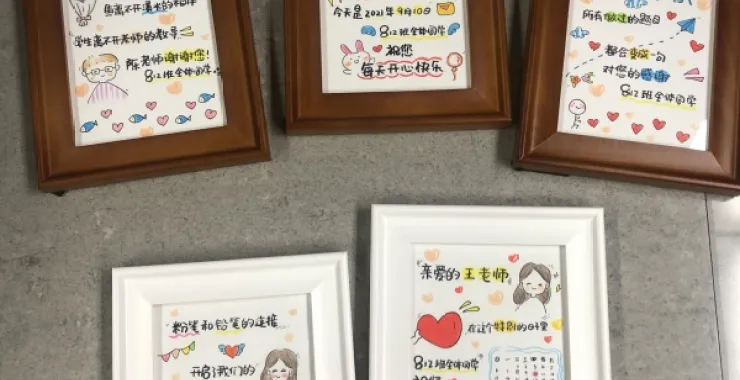 马离不开
的相伴
学生离不开老师的教导
陈老师谢谢您!
812班全体同学
今天是2021年9月10日
812班全体同学
祝您
每天开心快乐
所有做过的题目
都会变成一句
对您的感谢
812班全体同学
粉笔和铅笔的连接
开启了我们的
亲爱的王老师
在这个特别的日子里
812班全体同学
祝您